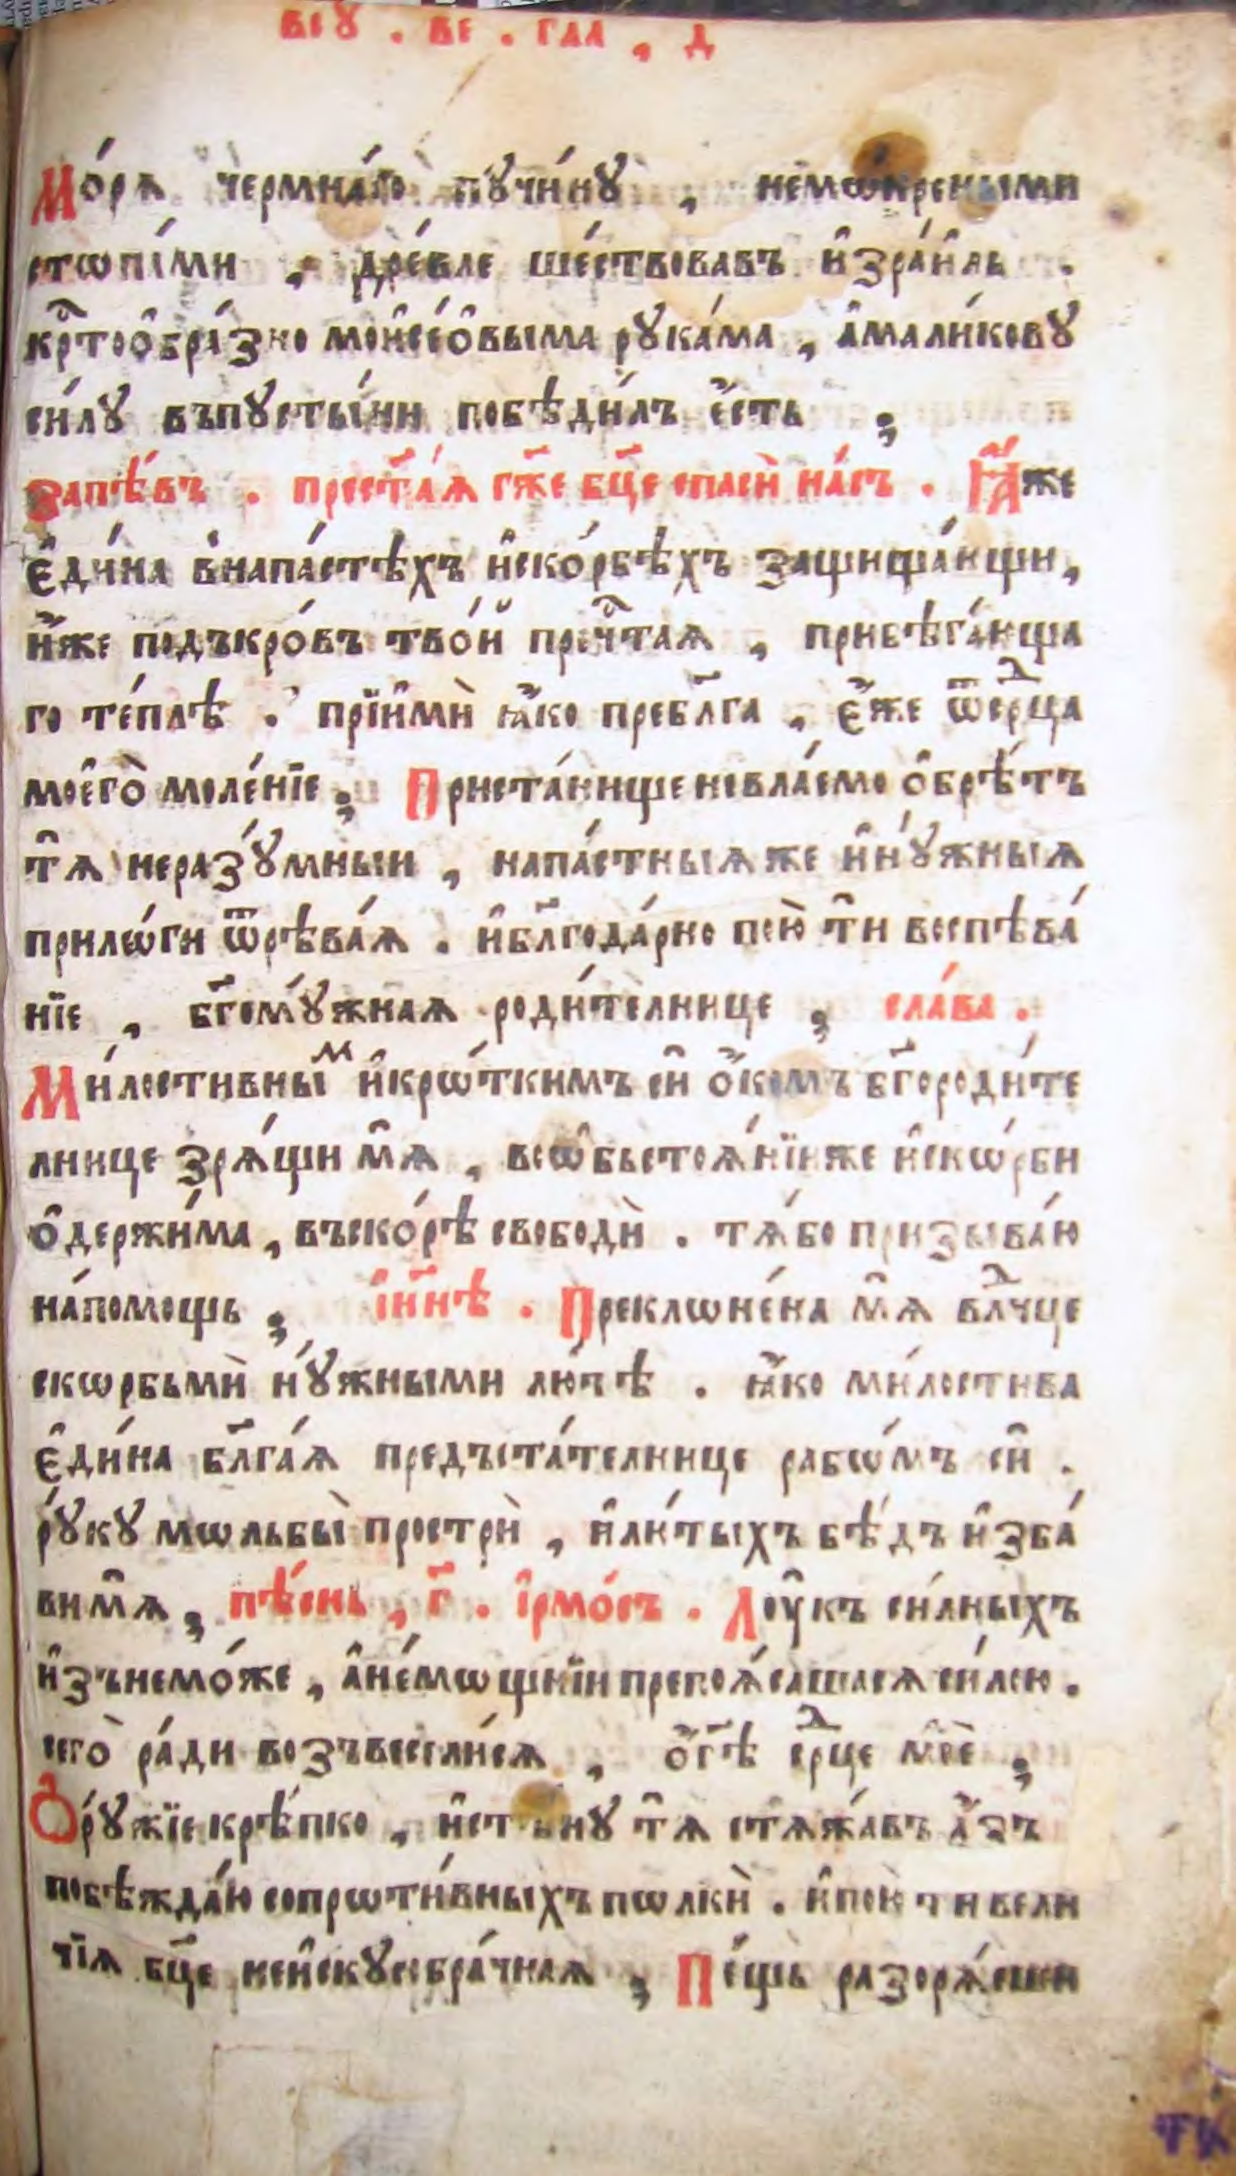 вѕꙋ . ве . глⷶ , д
Мо́рѧ чермна́го пꙋчи́нꙋ , немѡ́креными
стѡпа́ми , дре́вле ше́ствовавъ и҆зра́и҆ль .
крⷭ҇тоѻ҆бра́зно мои҆се́ѻ҆выма рꙋка́ма , а҆мали́ковꙋ
си́лꙋ въпꙋсты́ни побѣди́лъ є҆́сть ;
запѣ́въ . прест҃а́ѧ гж҃е бц҃е спасѝ на́съ . Ꙗ҆́же
є҆ди́на внапа́стѣхъ и҆ско́рбѣхъ защища́ющи,
и҆́же подъкро́въ тво́й преч҇таѧ , прибѣга́юща
го те́плѣ . прїи҆мѝ ꙗ҆́ко пребл҃га , є҆́же ѿсрⷣца
моегѡ̀ моле́нїе ; Приста́нище невла́емо ѻ҆брѣ́тъ
тѧ̑ неразꙋ́мныи , напа́стныѧ же и҆нꙋ́жныѧ
прилѡ́ги ѿрѣва́ѧ . и҆бл҃года́рно пою̀ тѝ воспѣва́
нїе , бг҃омꙋ́жнаѧ роди́телнице ; сла́ва .
Ми́лостивныⷨ и҆крѡ́ткимъ сѝ ѻ҆́комъ бг҃ороди́те
лнице зрѧ́щи мѧ̑ , восѡ҆бьстоѧ́нїиже и҆скѡ́рби
ѻ҆держи́ма , въско́рѣ свободѝ . тѧ́бо призыва́ю
на́помощь ; і҆н҃нѣ . Преклѡне́на мѧ̑ влⷣчце
скѡрбьмѝ нꙋ́жными лю́тѣ . ꙗ҆́ко ми́лостива
є҆ди́на бл҃га́ѧ предъста́телнице рабѡ́мъ сѝ .
рꙋ́кꙋ мѡльбы̀ прострѝ , и҆лю́тыхъ бѣ́дъ и҆зба́
ви мѧ̑ ; пѣ́снь , г҃ . і҆рмо́съ . Лоу҆къ си́лныхъ
и҆зънемо́же , а҆не́мѡщнїи препоѧ́сашасѧ си́лою .
сего̀ ра́ди возъвесели́сѧ , ѻ҆бг҃ѣ срⷣце моѐ ;
Ѻ҆рꙋ́жїе крѣ́пко , и҆стинꙋ тѧ̑ стѧжа́въ а҆́зъ
побѣжда́ю сопрѡти́вныхъ пѡлкѝ . и҆пою̀ ти вели
чїѧ бц҃е неи҆скꙋсобра́чнаѧ ; Пе́щь разорѧ́еши